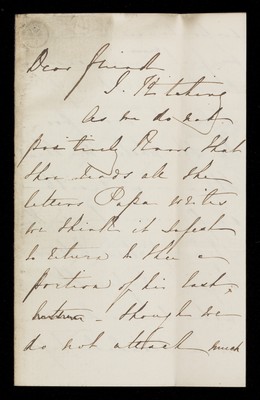 Dear friend
J. Kitching
As we do not
positively know that
thou reads all the
letters Papa writes
we think it safest
to return to thee a
portion of his last
- though we
do not attach much